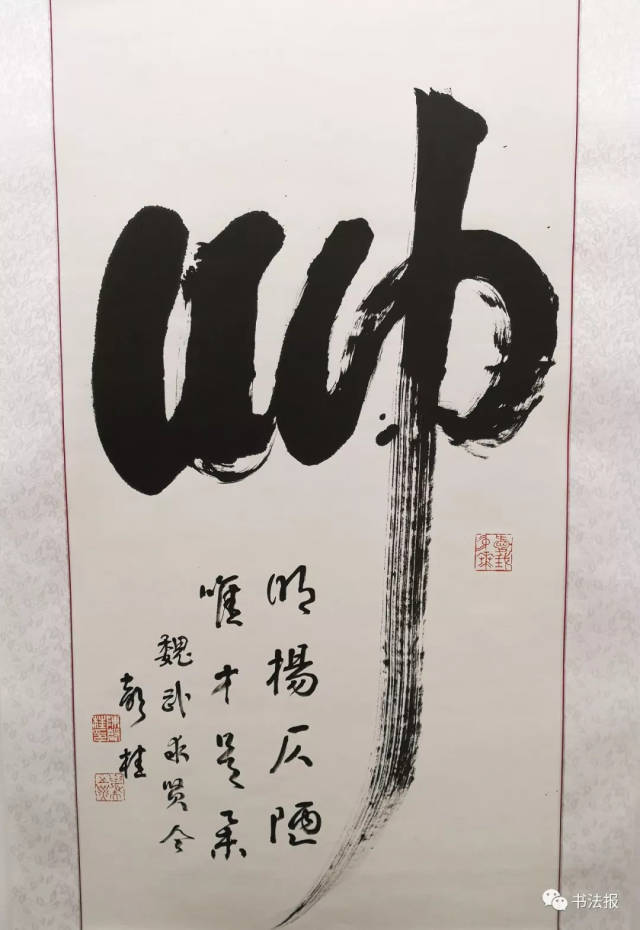 帅
明揚仄陋
唯才是举
魏武求贤令
彭桂
书法报